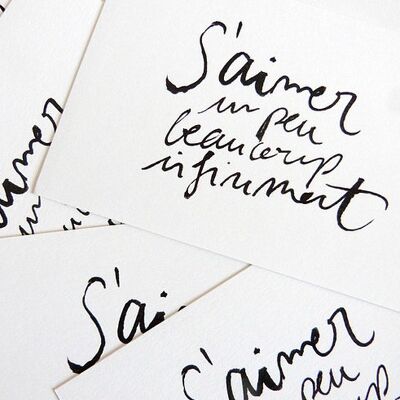 S'aimer
un peu
beaucoup
infiniment
S'aimer
un
S'ai
S'aimer
peu